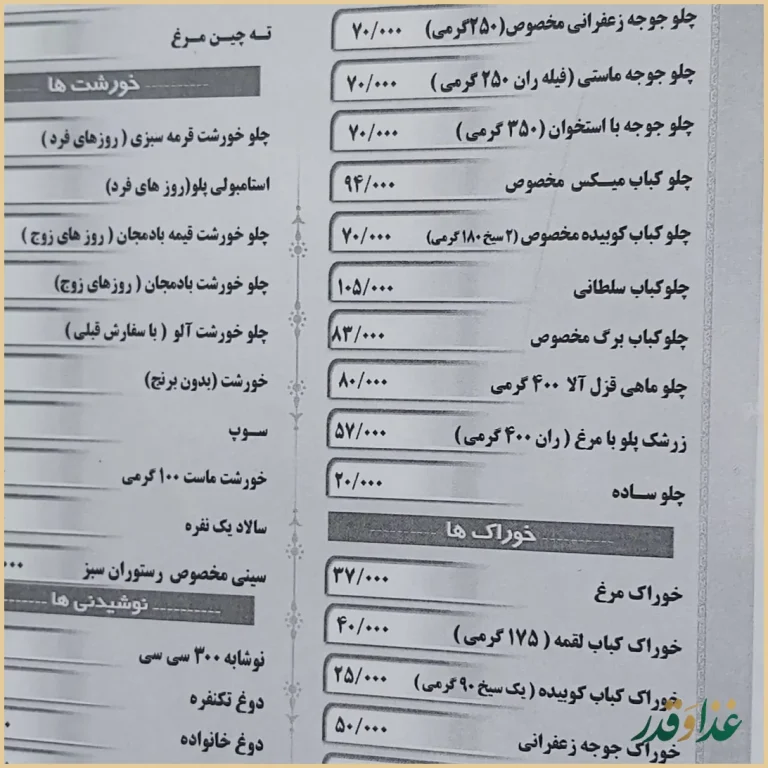 چلو جوجه زعفرانی مخصوص(۲۵۰گرمی) ۷۰/۰۰۰
چلو جوجه ماستی (فیله ران ۲۵۰ گرمی ) ۷۰/۰۰۰
چلو جوجه با استخوان (۳۵۰ گرمی ) ۷۰/۰۰۰
چلو کباب میکس مخصوص ۹۴/۰۰۰
چلو کباب کوبیده مخصوص (۲ سیخ ۱۸۰ گرمی) ۷۰/۰۰۰
چلوکباب سلطانی ۱۰۵/۰۰۰
چلوکباب برگ مخصوص ۸۳/۰۰۰
چلو ماهی قزل آلا ۴۰۰ گرمی ۸۰/۰۰۰
زرشک پلو با مرغ ( ران ۴۰۰ گرمی ) ۵۷/۰۰۰
چلو ساده ۲۰/۰۰۰
خوراک ها
خوراک مرغ ۳۷/۰۰۰
خوراک کباب لقمه ( ۱۷۵ گرمی ) ۴۰/۰۰۰
خوراک کباب کوبیده ( یک سیخ ۹۰ گرمی ) ۲۵/۰۰۰
خوراک جوجه زعفرانی ۵۰/۰۰۰
ته چین مرغ
خورشت ها
چلو خورشت قرمه سبزی ( روزهای فرد )
استامبولی پلو(روز های فرد)
چلو خورشت قیمه بادمجان ( روز های زوج )
چلو خورشت بادمجان ( روزهای زوج)
چلو خورشت آلو ( با سفارش قبلی )
خورشت (بدون برنج)
سوپ
خورشت ماست ۱۰۰ گرمی
سالاد یک نفره
سینی مخصوص رستوران سبز
نوشیدنی ها
نوشابه ۳۰۰ سی سی
دوغ تکنفره
دوغ خانواده
غذا و قدر